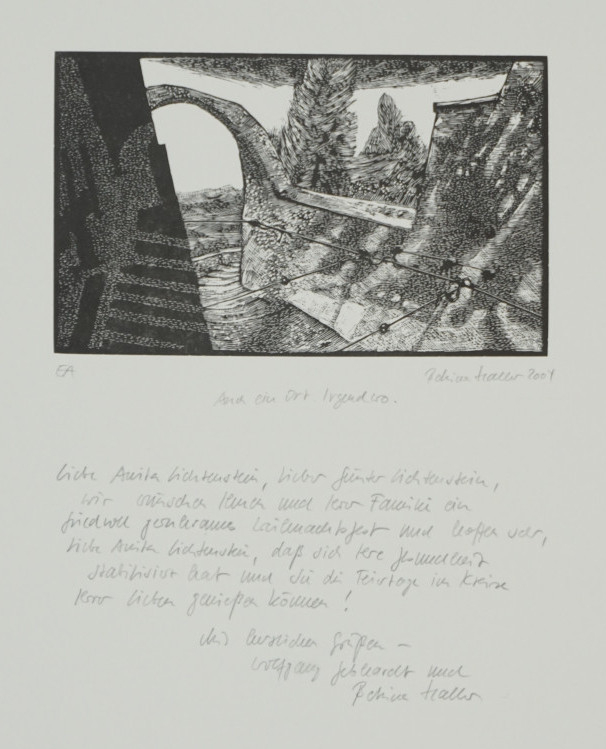 EA
Bettina Haller 2001
Auch ein Ort Irgendwo.
Liebe Anita Lichtenstein, lieber Günter Lichtenstein,
wir wünschen Ihnen und Ihrer Familie ein
friedvoll geruhsames Weihnachtsfest und hoffen sehr,
liebe Anita Lichtenstein, daß sich Ihre Gesundheit
stabilisiert hat und Sie die Feiertage im Kreise
Ihrer Lieben genießen können!
Mit herzlichen Grüßen –
Wolfgang Gebhardt und
Bettina Haller